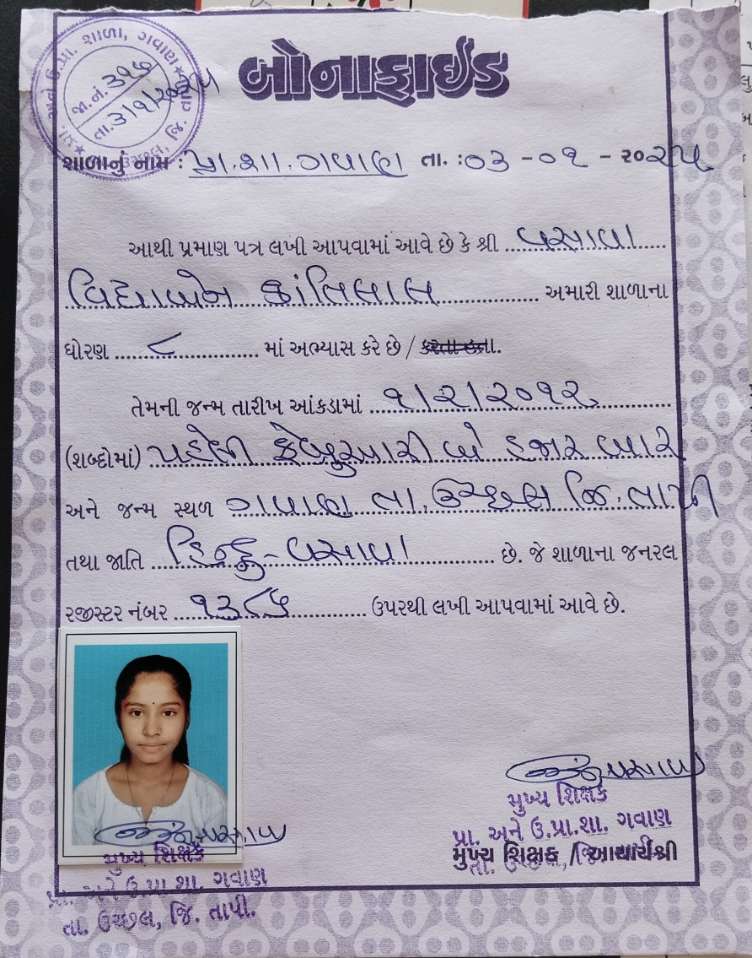 અને ઉ.પ્રા. શાળા, ગવાણ
જા.નં. ૩૧૭
તા. ૩/૧/૨૦૨૫
બોનાફાઈડ
શાળાનું નામ : પ્રા.શા. ગવાણ તા. : ૦૩ - ૦૧ - ૨૦૨૫
આથી પ્રમાણ પત્ર લખી આપવામાં આવે છે કે શ્રી વસાવા
વિદ્યાબેન કાંતિલાલ અમારી શાળાના
ધોરણ ૮ માં અભ્યાસ કરે છે / કરતા હતા.
તેમની જન્મ તારીખ આંકડામાં ૧/૨/૨૦૧૨
(શબ્દોમાં) પહેલી ફેબ્રુઆરી બે હજાર બાર
અને જન્મ સ્થળ ગવાણ તા. ઉચ્છલ જિ. તાપી
તથા જાતિ હિન્દુ - વસાવા છે. જે શાળાના જનરલ
રજીસ્ટર નંબર ૧૩૮૫ ઉપરથી લખી આપવામાં આવે છે.
મુખ્ય શિક્ષક
પ્રા. અને ઉ.પ્રા.શા. ગવાણ
મુખ્ય શિક્ષક / આચાર્યશ્રી
મુખ્ય શિક્ષક
પ્રા. અને ઉ.પ્રા.શા. ગવાણ
તા. ઉચ્છલ, જિ. તાપી.